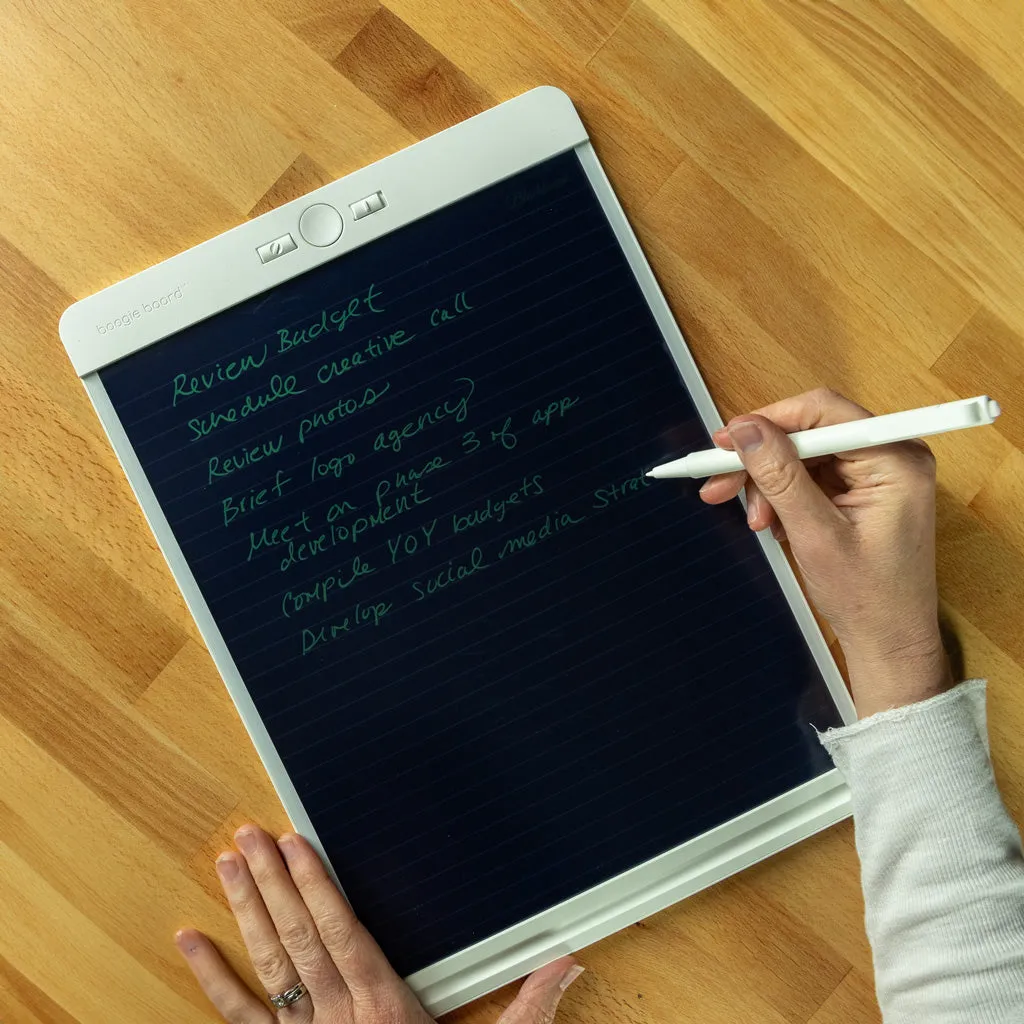 boogie board
Review Budget
Schedule creative call
Review photos
Brief logo agency
Meet on phase 3 of app
development
Compile YOY budgets
Develop social media strat